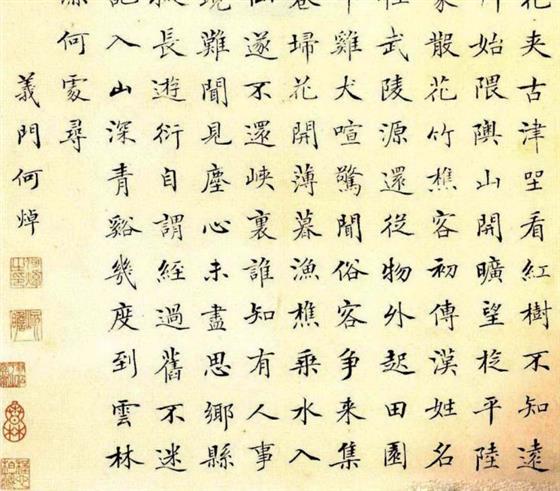 花夾古津坐看紅樹不知遠
行始隈隩山開曠望旋平陸
家散花竹樵客初傳漢姓名
住武陵源還從物外起田園
中雞犬喧驚聞俗客爭來集
巷埽花開薄暮漁樵乘水入
仙遂不還峽裏誰知有人事
境難聞見塵心未盡思鄉縣
擬長遊衍自謂經過舊不迷
記入山深青谿幾度到雲林
源何處尋
義門何焯